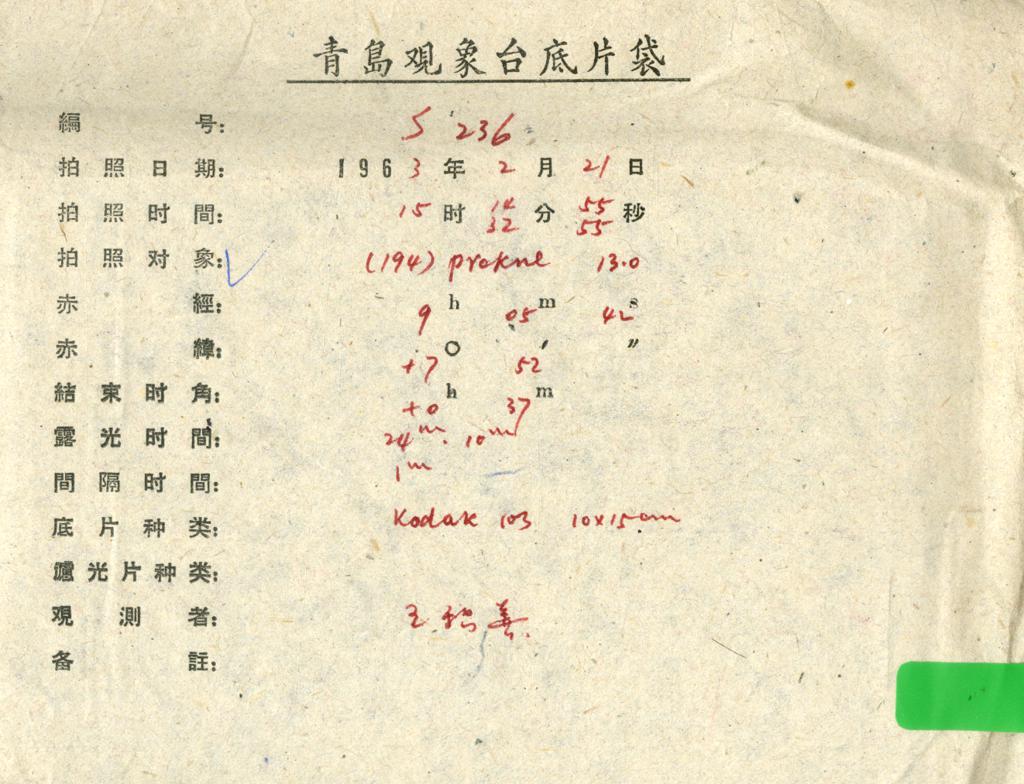 青島观象台底片袋
編 号: S 236
拍照日期: 1963年2月21日
拍照时間: 15时14分55秒
32 55
拍照对象: (194) prokne 13.0
赤經: 9h 05m 42s
赤緯: +7° 52′ ″
結束时角: +0h 37m
露光时間: 24m. 10m
間隔时間: 1m
底片种类: Kodak 103 10x15cm
濾光片种类:
观測者: 王 善
备註: